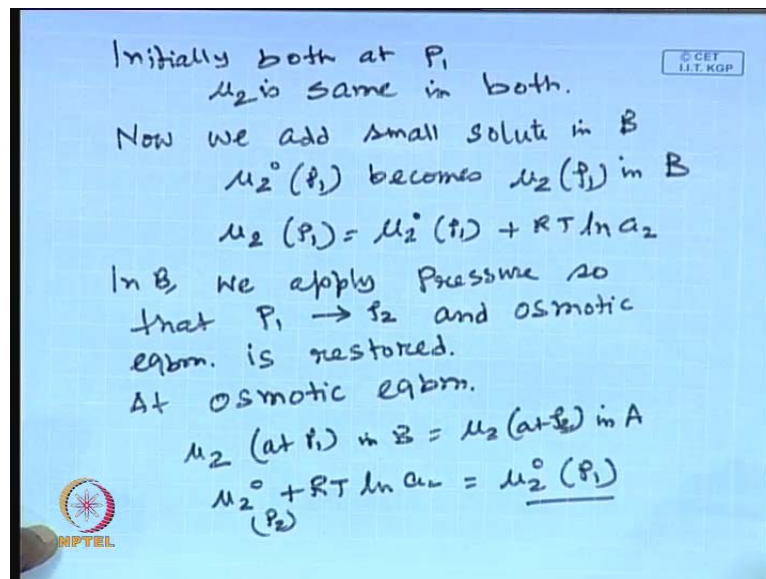 Initially both at P₁
© CET
I.I.T. KGP
μ₂ is same in both.
Now we add small solute in B
μ₂° (P₁) becomes μ₂ (P₁) in B
μ₂ (P₁) = μ₂° (P₁) + RT ln a₂
In B, we apply Pressure so
that P₁ → P₂ and osmotic
eqbm. is restored.
At osmotic eqbm.
μ₂ (at P₁) in B = μ₂ (at P₂) in A
μ₂° + RT ln a₂ = μ₂° (P₁)
(P₂)
NPTEL